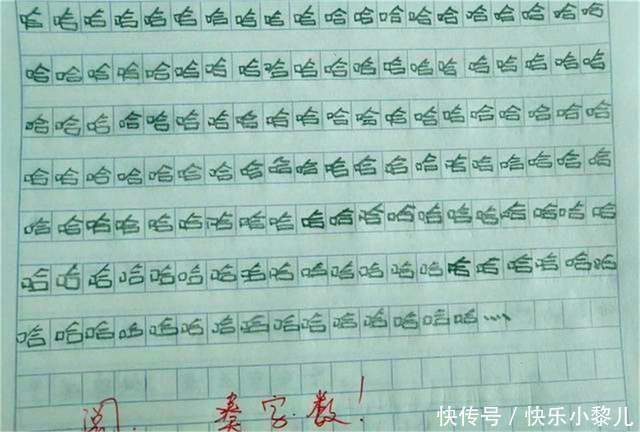 哈哈哈哈哈哈哈哈哈哈哈哈哈哈哈哈哈哈哈哈
哈哈哈哈哈哈哈哈哈哈哈哈哈哈哈哈哈哈哈哈
哈哈哈哈哈哈哈哈哈哈哈哈哈哈哈哈哈哈哈哈
哈哈哈哈哈哈哈哈哈哈哈哈哈哈哈哈哈哈哈哈
哈哈哈哈哈哈哈哈哈哈哈哈哈哈哈哈哈哈哈哈
哈哈哈哈哈哈哈哈哈哈哈哈哈哈哈哈哈哈哈哈
哈哈哈哈哈哈哈哈哈哈哈哈哈哈哈……
阅. 字数！
快传号／快乐小黎儿